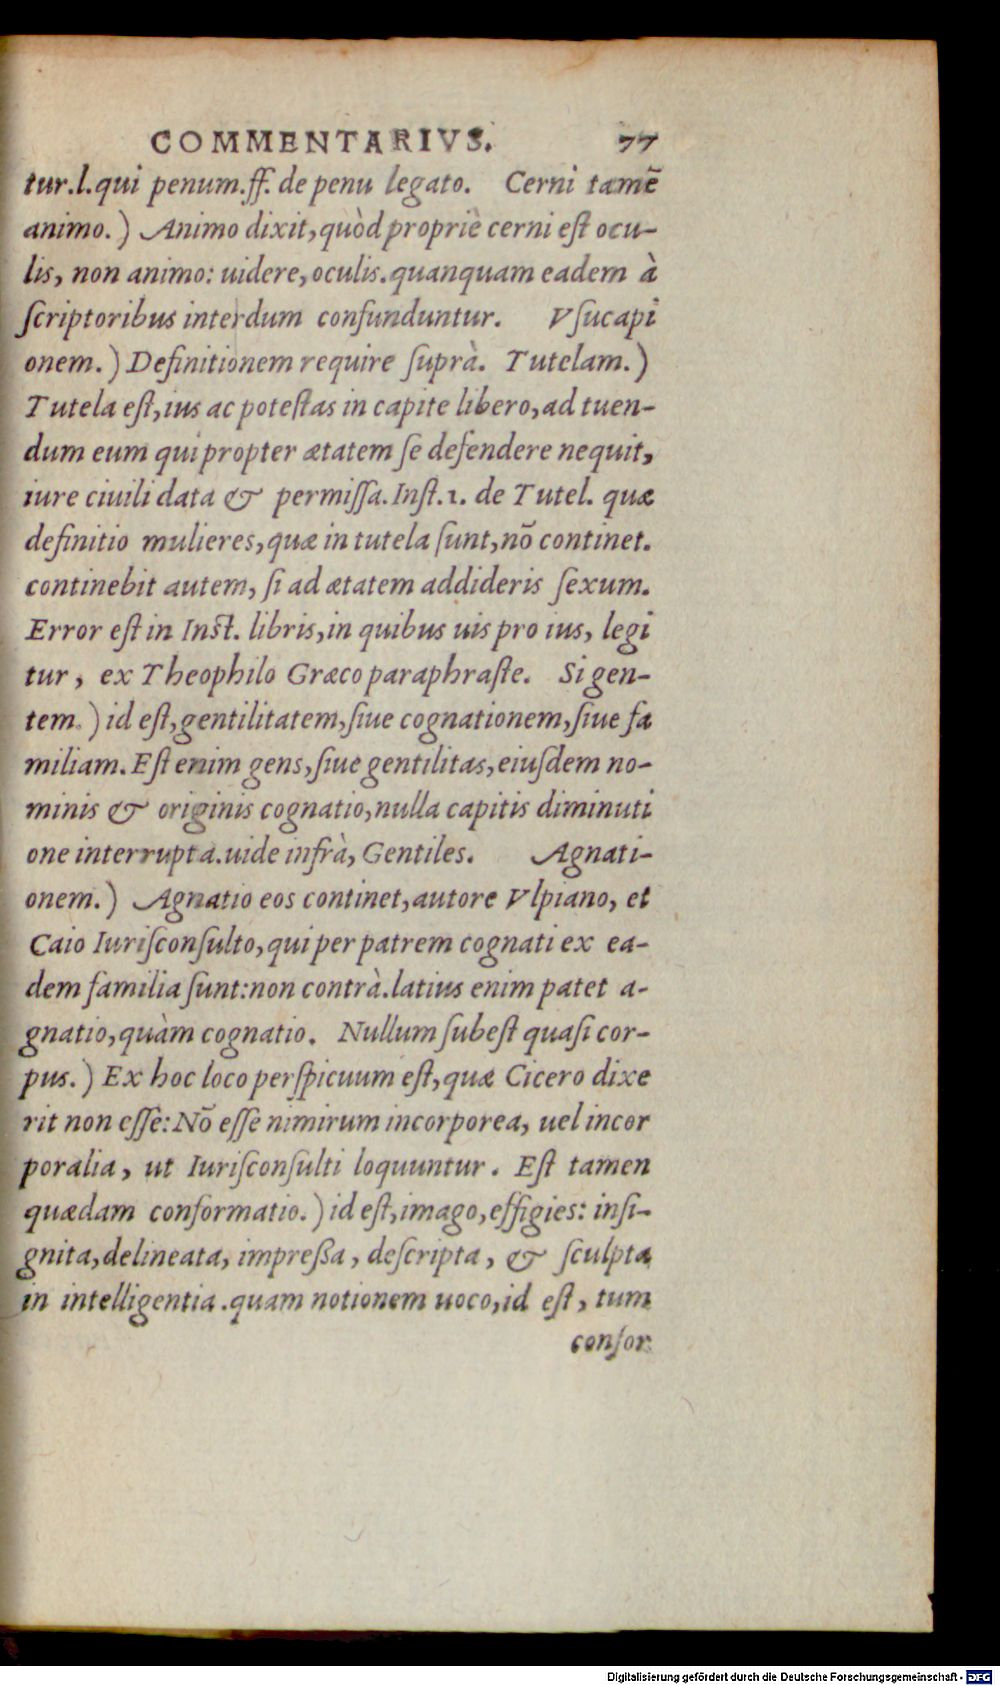 COMMENTARIVS. 77
tur.l.qui penum.ff. de penu legato. Cerni tamē
animo.) Animo dixit, quòd propriè cerni eſt ocu-
lis, non animo: uidere, oculis. quanquam eadem à
ſcriptoribus interdum confunduntur. Vſucapi
onem.) Definitionem require ſuprà. Tutelam.)
Tutela eſt, ius ac poteſtas in capite libero, ad tuen-
dum eum qui propter ætatem ſe defendere nequit,
iure ciuili data & permiſſa. Inſt. 1. de Tutel. quæ
definitio mulieres, quæ in tutela ſunt, nō continet.
continebit autem, ſi ad ætatem addideris ſexum.
Error eſt in Inſt. libris, in quibus uis pro ius, legi
tur, ex Theophilo Græco paraphraſte. Si gen-
tem.) id eſt, gentilitatem, ſiue cognationem, ſiue fa
miliam. Eſt enim gens, ſiue gentilitas, eiuſdem no-
minis & originis cognatio, nulla capitis diminuti
one interrupta. uide infrà, Gentiles. Agnati-
onem.) Agnatio eos continet, autore Vlpiano, et
Caio Iuriſconſulto, qui per patrem cognati ex ea-
dem familia ſunt: non contrà. latius enim patet a-
gnatio, quàm cognatio. Nullum ſubeſt quaſi cor-
pus.) Ex hoc loco perſpicuum eſt, quæ Cicero dixe
rit non eſſe: Nō eſſe nimirum incorporea, uel incor
poralia, ut Iuriſconſulti loquuntur. Eſt tamen
quædam conformatio.) id eſt, imago, effigies: inſi-
gnita, delineata, impreßa, deſcripta, & ſculpta
in intelligentia. quam notionem uoco, id eſt, tum
confor
Digitalisierung gefördert durch die Deutsche Forschungsgemeinschaft - DFG